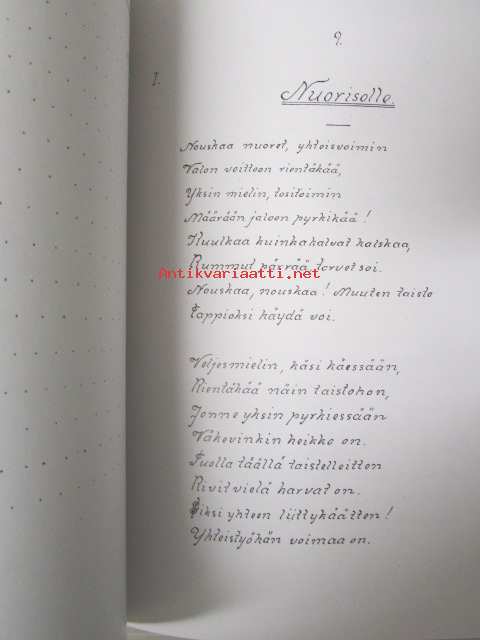 9.
I.
Nuorisolle.
Nouskaa nuoret, yhteisvoimin
Valon voittoon rientäkää,
Yksin mielin, tositoimin
Määrään jaloon pyrkikää!
Kuulkaa kuinka kalvat kalskaa,
Rummut pärrää torvet soi.
Antikvariaatti.net
Nouskaa, nouskaa! Muuten taisto
Tappioksi käydä voi.
Veljesmielin, käsi käessään,
Rientäkää näin taistohon,
Jonne yksin pyrkiessään
Väkevinkin heikko on.
Tuolla täällä taistelleitten
Rivit vielä harvat on.
Siksi yhteen liittykäätten!
Yhteistyöhän voimaa on.